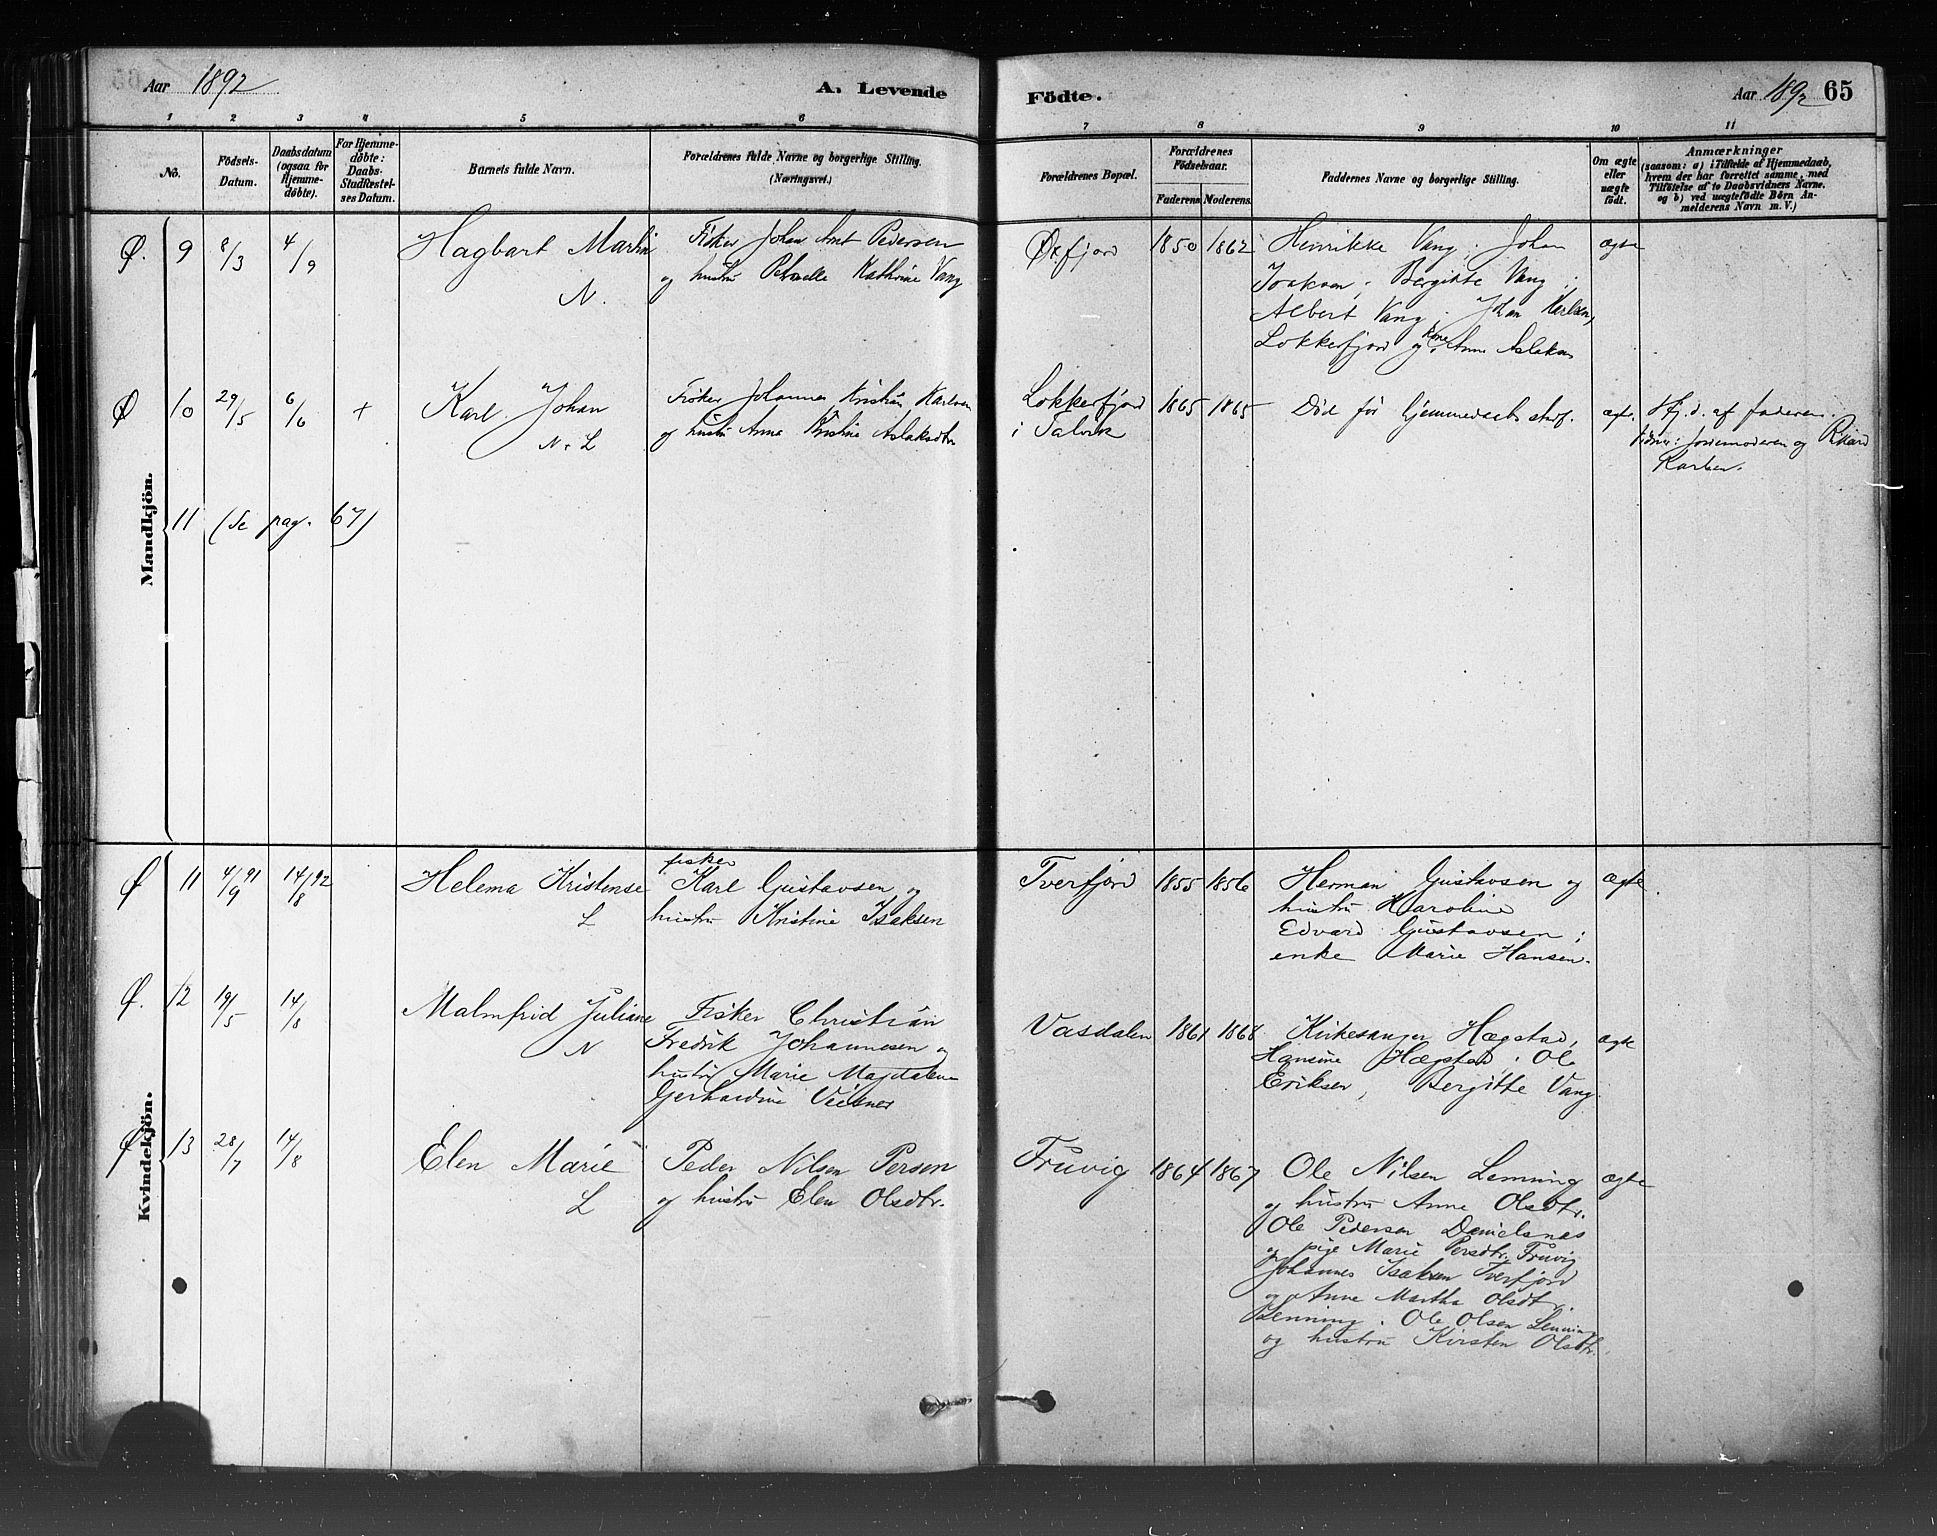 Aar 1892
A. Levende
Födte.
Aar 1892 65
1 2 3 4 5 6 7 8 9 10 11
No.
Födsels-Datum.
Daabsdatum (ogsaa for Hjemme-döbte).
For Hjemme-döbte: Daabs-Stadfæstel-ses Datum.
Barnets fulde Navn.
Forældrenes fulde Navne og borgerlige Stilling. (Næringsvei.)
Forældrenes Bopæl.
Forældrenes Födselsaar.
Faderens Moderens
Faddernes Navne og borgerlige Stilling.
Om ægte eller uægte födt.
Anmærkninger
(saasom: a) i Tilfælde af Hjemmedaab,
hvem der har forrettet samme, med
Tilföielse af to Daabsvidners Navne,
og b) ved uægtefödte Börn An-
melderens Navn m. V.)
Mandkjön.
Ø. 9 8/3 4/9 Hagbart Martin
N.
Fisker Johan Arnt Pedersen
og hustru Petnelle Kathrine Vang
Øxfjord 1850 1862
Henrikke Vang; Johan
Isaksen; Bergitte Vang;
Albert Vang; Johan Karlsen,
Lokkerfjord og kone Anne Aslaksen
ægte
Ø 10 29/5 6/6 + Karl Johan
N. L
Fisker Johannes Kristian Karlsen
og hustru Anna Kristine Aslaksdtr
Lokkerfjord
i Talvik
1865 1865
Död før hjemmedaab stadf.
ægte
Hj. d. af faderen.
vidner: jordemoderen og Rikard
Karlsen.
11 (se pag. 67)
Kvindekjön.
Ø 11 4/9 91 14/8 92 Helema Kristense
L
fisker
Karl Gustavsen og
hustru Kristine Isaksen
Tverfjord 1855 1856
Herman Gustavsen og
hustru Karoline
Edvard Gustavsen;
enke Marie Hansen.
ægte
Ø. 12 19/5 14/8 Malmfrid Juliane
N
Fisker Christian
Fredrik Johannesen og
hustru Marie Magdalene
Gerhardine
Vasdalen 1861 1868
Kirkesanger Hægstad,
Hansine Hægstad; Ole
Eriksen, Bergitte Vang.
ægte
Ø 13 28/7 14/8 Elen Marie
L
Peder Nilsen Persen
og hustru Elen Olsdtr.
Fruvig 1864 1867
Ole Nilsen Lemning
og hustru Anne Olsdtr.
Ole Pedersen Danielsnes
og pige Marie Persdtr. Fruvig
Johannes Isaksen Tverfjord
og Anne Martha Olsdtr.
Lemning. Ole Olsen Lemning
og hustru Kirsten Olsdtr.
ægte